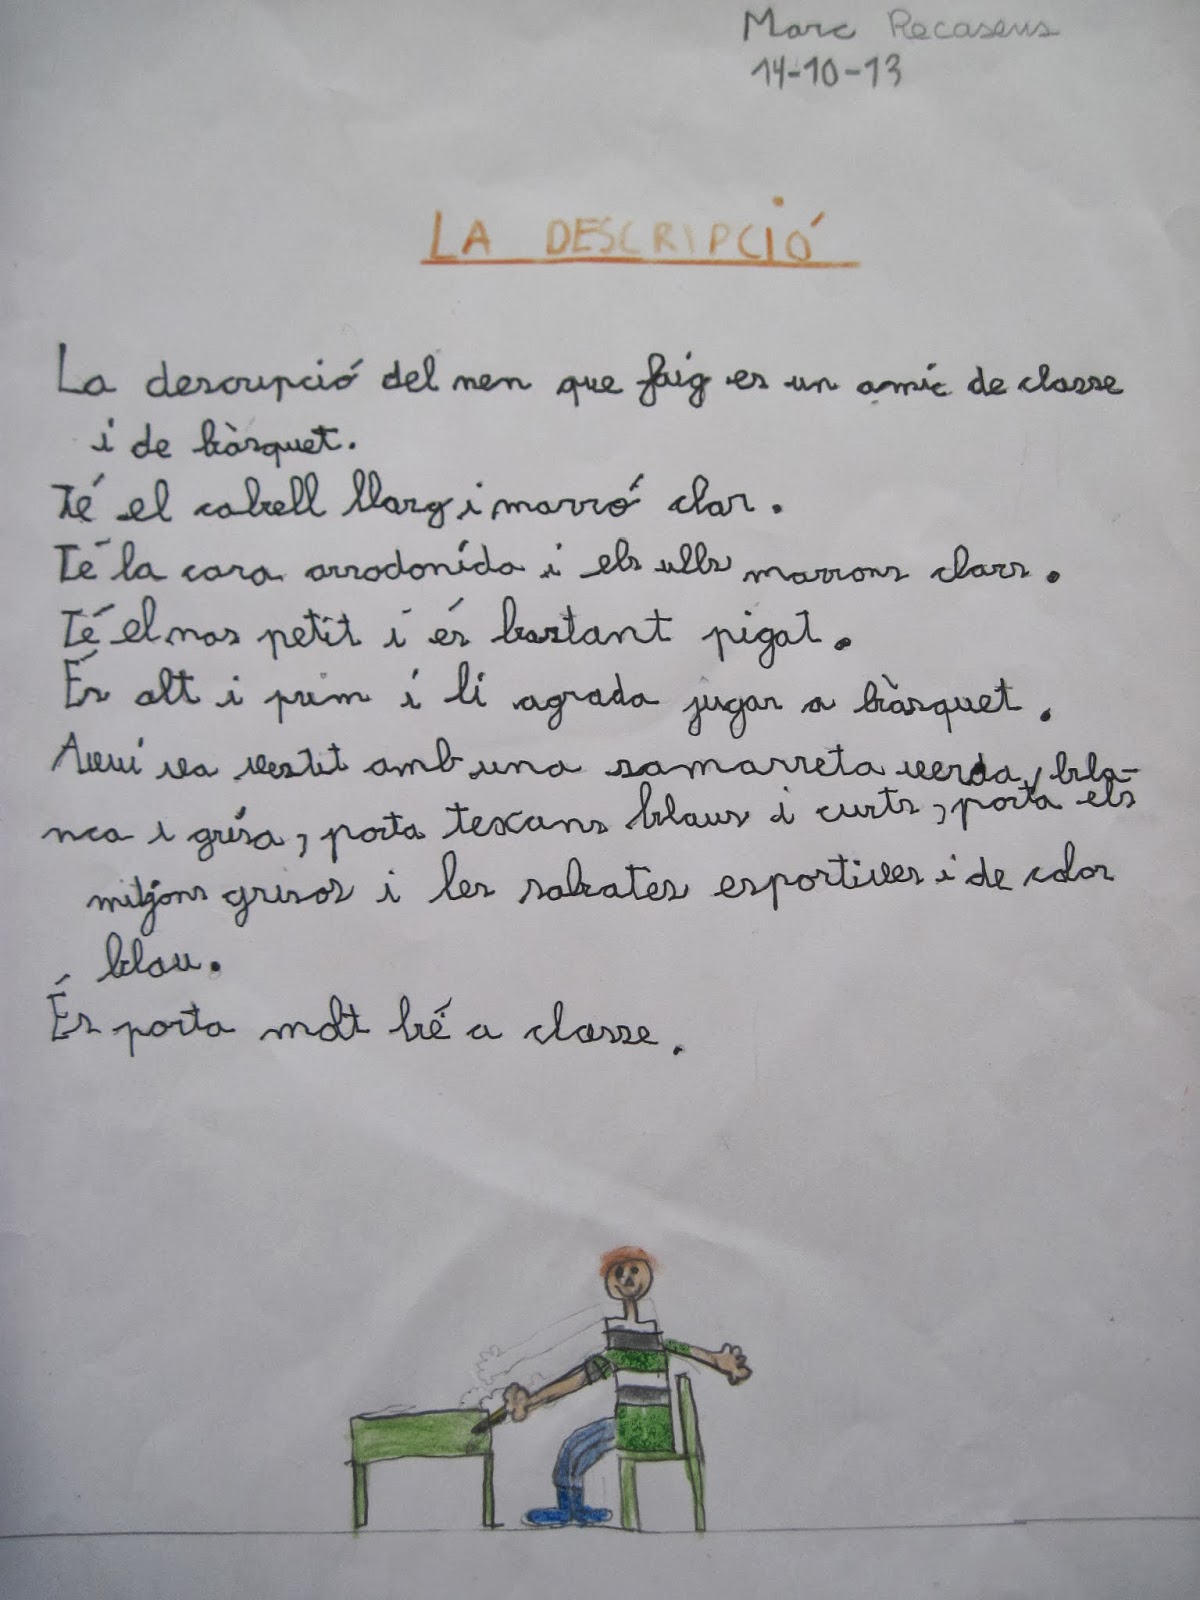 Marc Recasens
14-10-13
LA DESCRIPCIÓ
La descripció del nen que faig es un amic de classe
i de bàsquet.
Té el cabell llarg i marró clar.
Té la cara arrodonída i els ulls marrons clars.
Té el nas petit i és bastant pigat.
És alt i prim i li agrada jugar a bàsquet.
Avui va vestit amb una samarreta verda, bla-
nca i grisa, porta texans blaus i curts, porta els
mitjons grisos i les sabates esportives i de color
blau.
És porta molt bé a classe.